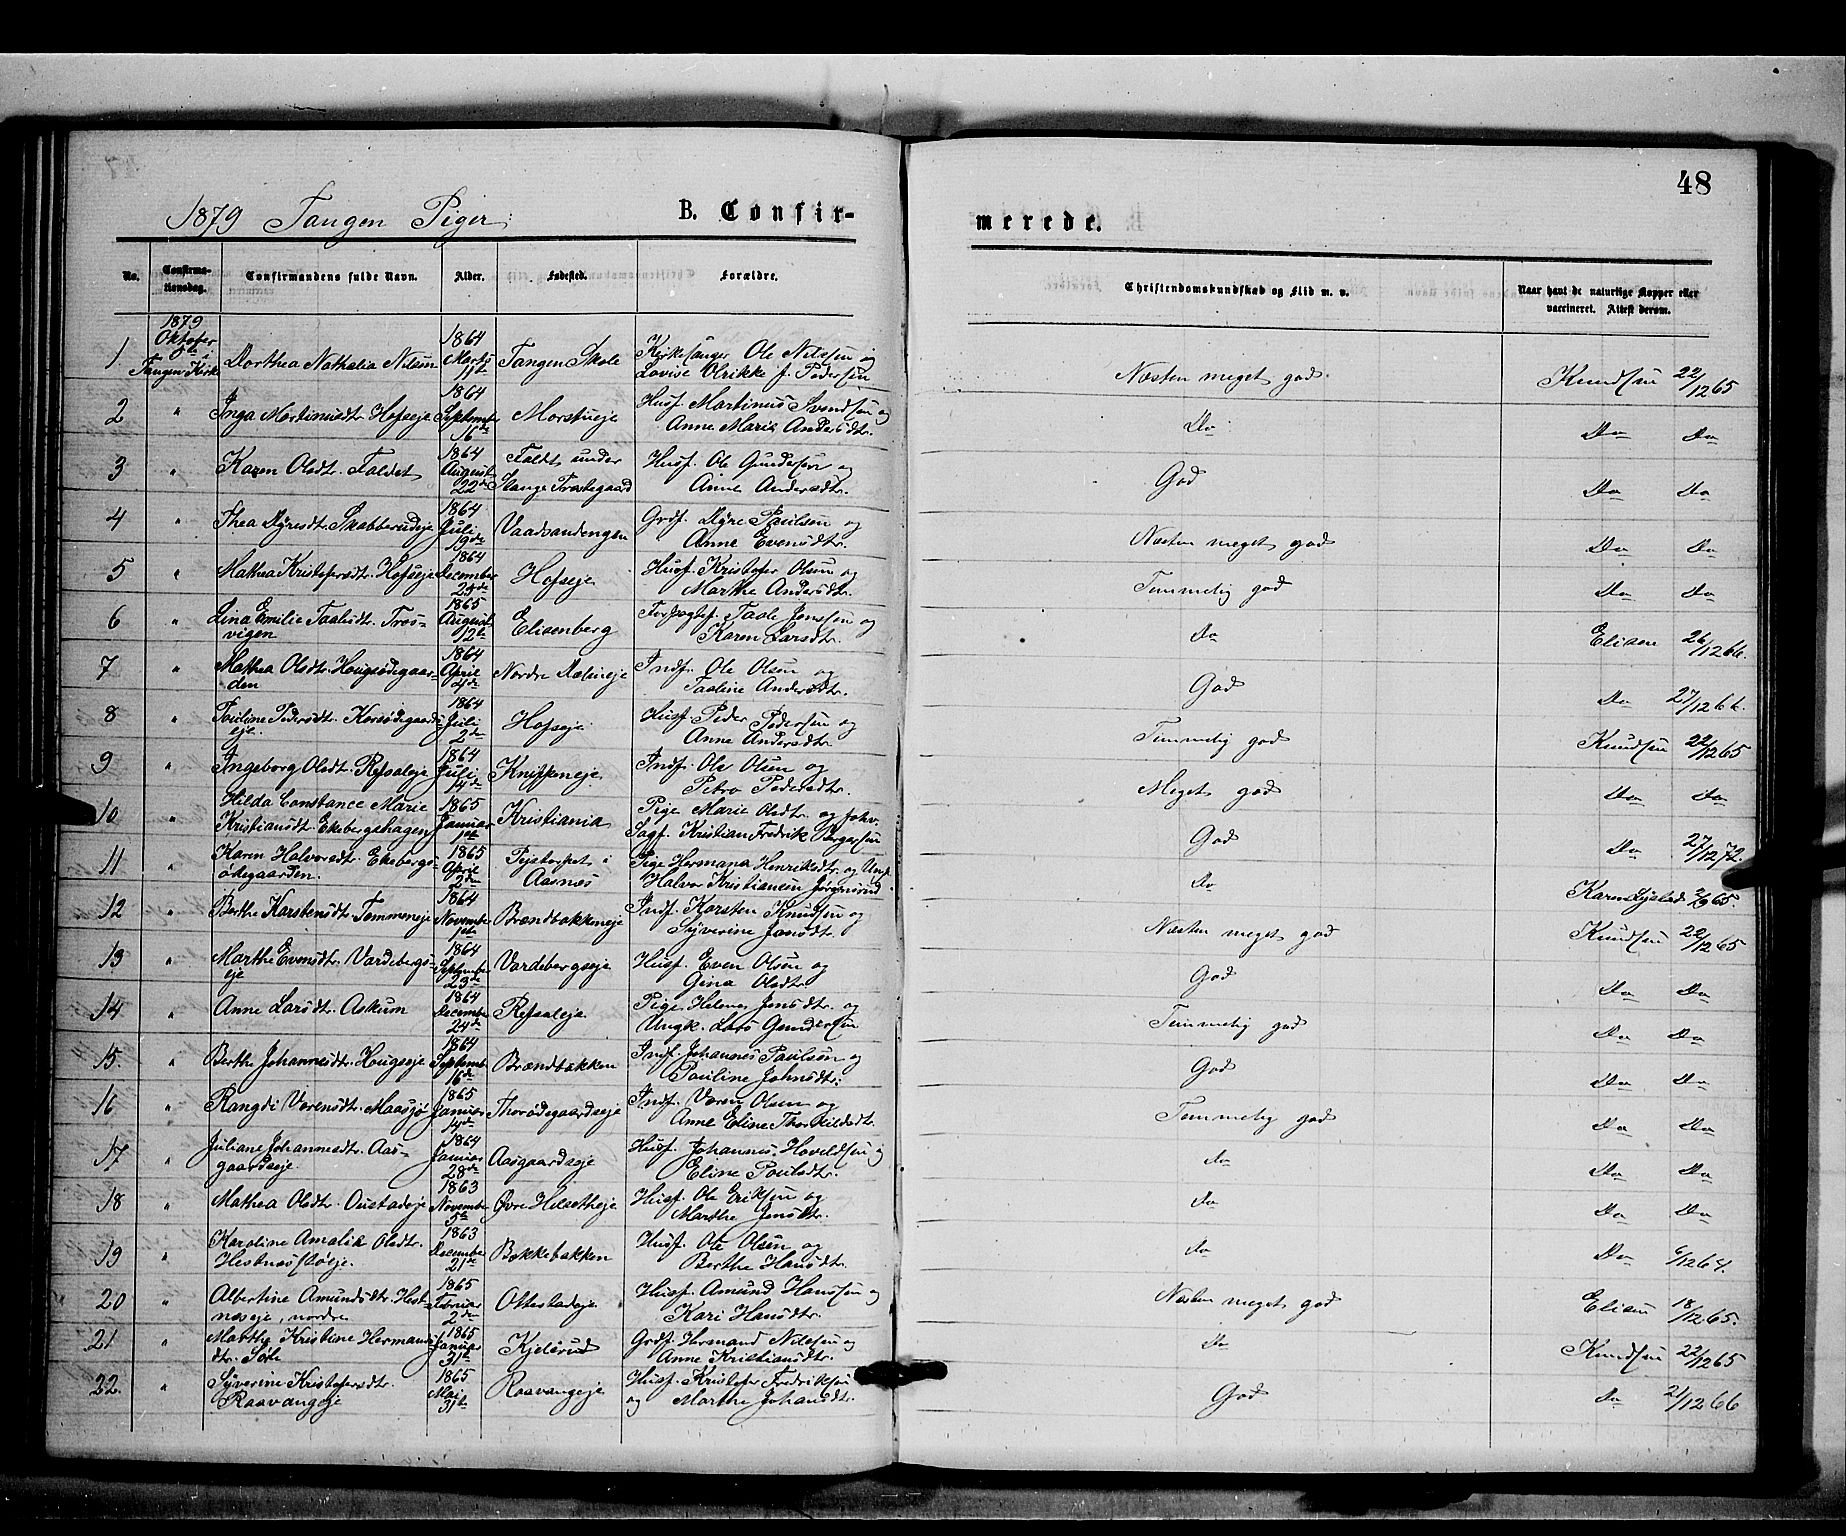 48
1879 Tangen Piger. B. Confirmerede.
No. Confirmationsdag. Confirmandens fulde Navn. Alder. Fødested. Forældre. Christendomskundskab og Flid m. v. Naar havt de naturlige Kopper eller vaccineret. Attest derom.
1 1879 Oktober 5te i Tangen Kirke Dorthea Nathalia Nilsen 1864 Marts 11te Tangen Skole Kirkesanger Ole Nilssen og Lovise Olrikke f. Pedersen Næsten meget god. Knudsen 22/12 65
2 " Inga Martinusdtr. Hofseje 1864 September 16de Morstueje Husf. Martinus Svendsen og Anne Marie Andersdtr. Do Do Do
3 " Karen Olsdt. Faldet 1864 August 22de Faldt under Stange Præstegaard Husf. Ole Gundersen og Anne Andersdtr. God Do Do
4 " Thea Dyresdt. Skabberudeje 1864 Juli 19de Vaadsandengen Grdf. Dyre Paulsen og Anne Evensdtr. Næsten meget god Do Do
5 " Mathea Kristofersdtr. Hofseje 1864 December 25de Hofseje Husf. Kristofer Olsen og Marthe Andersdtr. Temmelig god Do Do
6 " Lina Emilie Taalesdtr. Trosvigen 1865 August 12te Elisenberg Taale Jenssen og Karen Larsdtr. Do Elisen 26/12 66.
7 " Mathea Olsdt. Hougsødegaarden 1864 April 4de Nordre Mælumeje Indf. Ole Olsen og Taaline Andersdtr. God Do 27/12 66.
8 " Pauline Pedersdt. Korsødegaardseje. 1864 Juli 2de Hofseje Husf. Peder Pedersen og Anne Andersdtr. Temmelig god Knudsen 22/12 65
9 " Ingeborg Olsdt. Refsaleje 1864 Juli 14de Knippeneje. Indf. Ole Olsen og Petra Pedersdtr. Meget god Do Do
10 " Hilda Constance Marie Kristiansdt. Ekebergshagen 1865 Januar 1ste Kristiania Pige Marie Olsdt. og Sagf. Kristian Fredrik God Do 27/12 72.
11 " Karen Halvorsdtr. Ekebergsødegaarden. 1865 April 2den i Aasnes Pige Hermana Henriksdtr. og Ungk. Halvor Kristiansen Jørgensrud Do Karen 2/9 65.
12 " Berthe Karstensdt. Tommeneje 1864 November 1ste Brændbakkeneje Indf. Karsten Knudsen og Syverine Jansdt. Næsten meget god Knudsen 22/12 65
13 " Marthe Evensdt. Vardebergseje 1864 September 23de Vardebergseje Husf. Even Olsen og Gina Olsdt. God Do Do
14 " Anne Larsdt. Askum 1864 December 24de Refsaleje Pige Helene Jensdtr. og Ungk. Lars Gundersen Temmelig god Do Do
15. " Berthe Johannesdt. Hougseje 1864 September 16de Brændbakken Indf. Johannes Paulsen og Pauline Johnsdt. God Do Do
16 " Rangdi Vorensdt. Maasjø 1865 Januar 14de Thorødegaardseje Indf. Voren Olsen og Anne Eline Thorkildsdtr. Temmelig god Do Do
17 " Juliane Johannesdt. Aasgaardseje. 1864 Januar 28de Aasgaardseje Husf. Johannes Hoveldsen og Eline Poulsdtr. Do Do Do
18 " Mathea Olsdtr. Oustadeje 1863 November 5te Øvre Helsetheje Husf. Ole Eriksen og Marthe Jensdtr. Do Do Do
19 " Karoline Amalie Olsdtr. Hestnæsfløeje. 1863 December 21de Bækkebakken Husf. Ole Olsen og Berthe Hansdt. Do Do 6/12 64.
20 " Albertine Amundsdtr. Hestnæseje, nordre 1865 Februar 2den Ottestadeje Husf. Amund Hanssen og Kari Hansdtr. Næsten meget god Elisen 18/12 65.
21 " Marthe Kristine Hermansdtr. Sørli 1865 Januar 31te Kjelsrud Grdf. Hermand Nilssen og Anne Kristiansdtr. Do Knudsen 22/12 65
22. " Syverine Kristofersdtr. Raavangeje 1865 Mai 31te Raavangeje Husf. Kristofer Fredriksen og Marthe Johansdtr. God Do 21/12 66